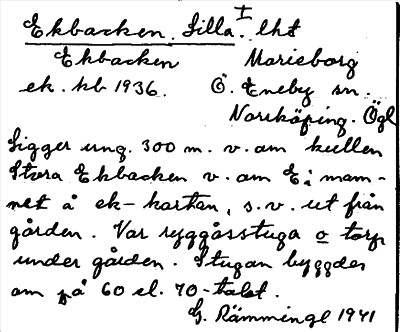 Ekbacken, Lilla. I lht
Ekbacken Marieborg
ek. kb 1936. Ö. Eneby sn.
Norrköping. Ögl
Ligger ung. 300 m. v. om kullen
Stora Ekbacken v. om E i nam-
net å ek-kartan, s.v. ut från
gården. Var ryggåsstuga o torp
under gården. Stugan byggdes
om på 60 el. 70-talet.
G. Rämminge 1941